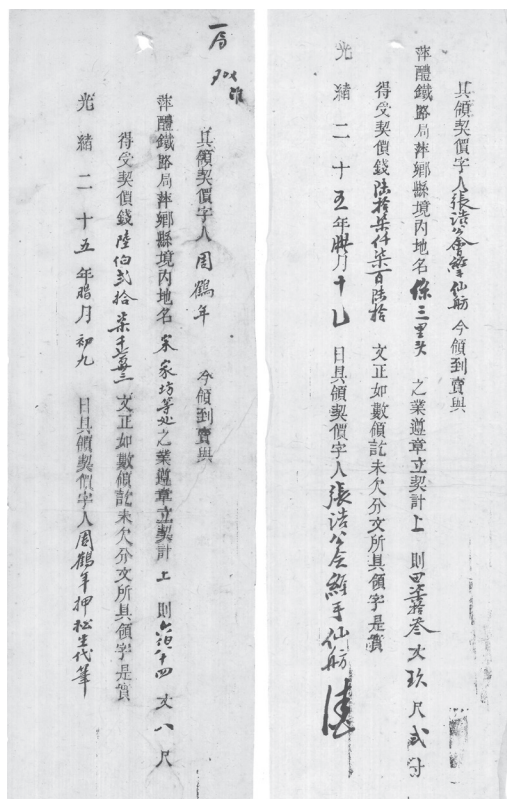 具領契價字人張浩公會經手仙舫 今領到賣與
萍醴鐵路局萍鄉縣境內地名 保三里頭 之業遵章立契計上 則田柒拾叁丈玖尺弍寸
得受契價錢陸拾柒仟柒百陸拾 文正如數領訖未欠分文所具領字是實
光緒二十五年 月十 日具領契價字人張浩公会經手仙舫
一局
具領契價字人周鶴年 今領到賣與
萍醴鐵路局萍鄉縣境內地名 宋家坊等处之業遵章立契計 上 則 十四 丈八尺
得受契價錢陸伯弍拾柒千 文正如數領訖未欠分文所具領字是實
光緒二十五年臘月初九 日具領契價字人周鶴年押松生代筆